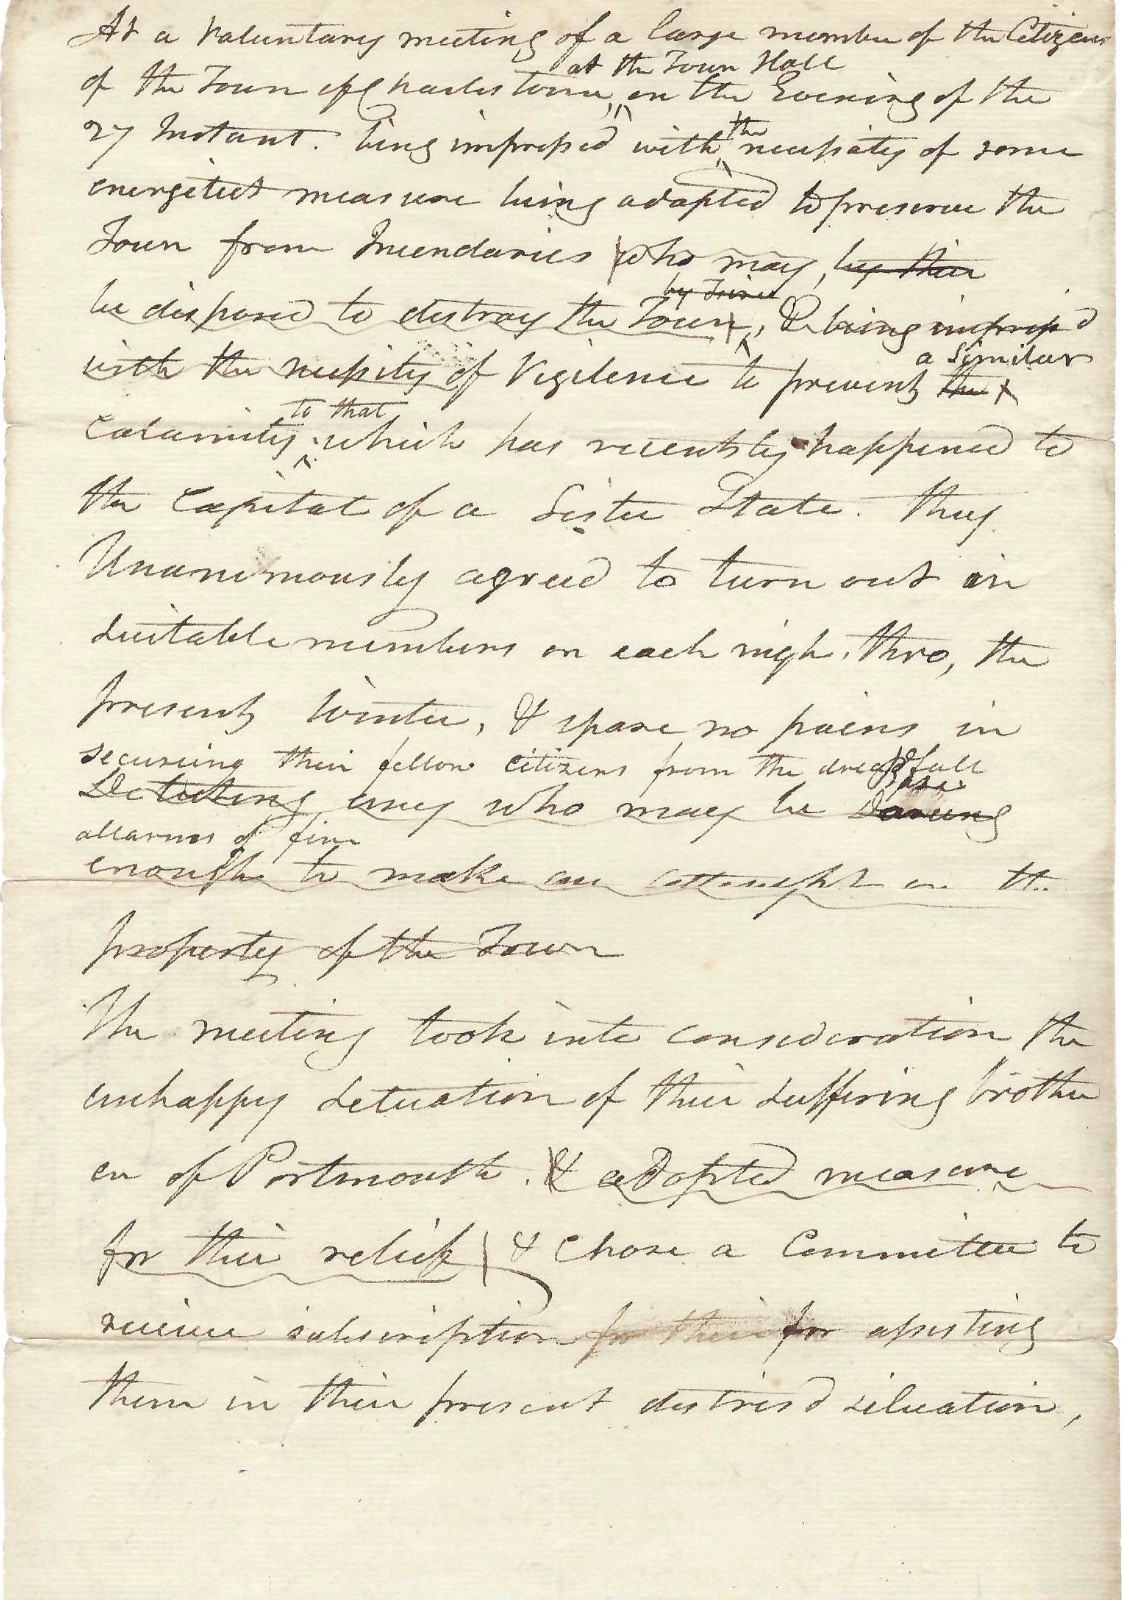 At a Voluntary meeting of a large number of the Citizens
at the Town Hall
of the Town of Charlestown, on the Evening of the
27 Instant. being impress'd with the necessity of some
energetick measure being adapted to preserve the
Town from Incendaries who may, by their
by Fire
be disposed to destroy the Town, & being impress'd
with the necessity of Vigilence to prevent the
a Similar
to that
Calamity which has recently happened to
the Capital of a Sister State. they
Unanimously agreed to turn out in
suitable numbers on each nigh. thro, the
present Winter, & spare no pains in
secureing their fellow citizens from the dreadfull
Detecting any who may be Dareing
allarms of fire
enough to make an attempt on the
property of the Town
The meeting took into consideration the
unhappy setuation of their suffering brother
en of Portsmouth. & adopted measure
for their relief & Chose a Committee to
recieve subscription for their for assisting
them in their present distress'd situation,